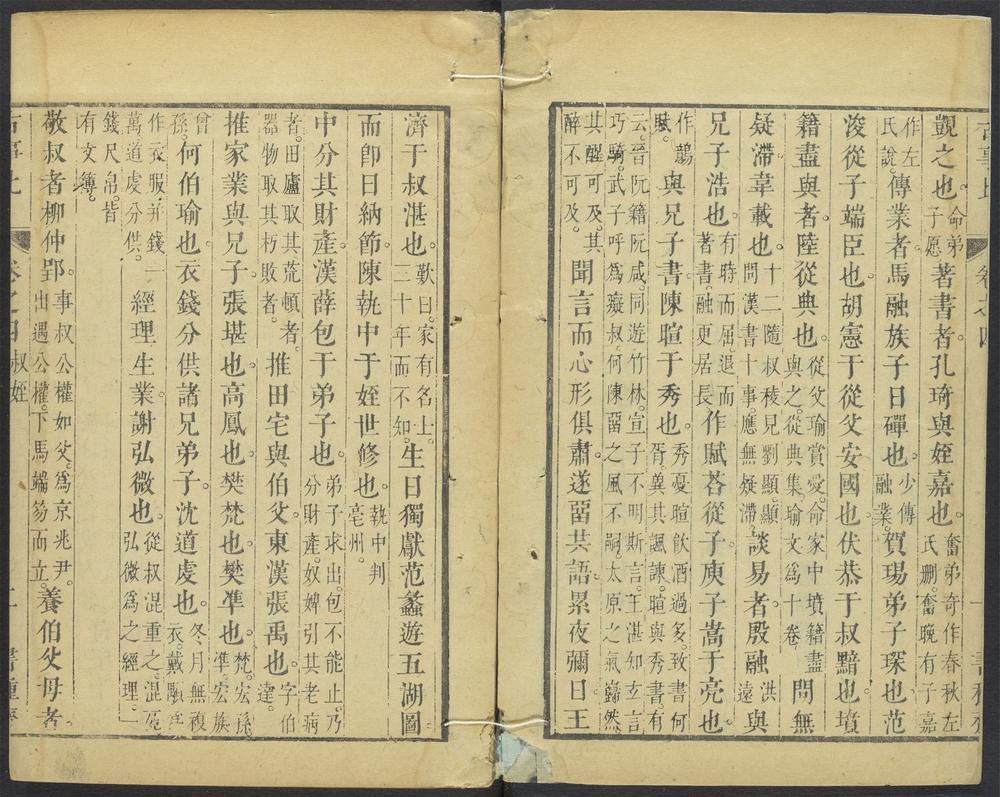 覬之也。命弟子愿著書者。孔琦與姪嘉也。奮弟奇作春秋左氏刪。奮晚有子嘉
作左氏說。傳業者。馬融族子日磾也。少傳融業。賀瑒弟子琛也。范
浚從子端臣也。胡憲于從父安國也。伏恭于叔黯也。墳
籍盡與者。陸從典也。從父瑜賞愛。命家中墳籍盡與之。從典集瑜文為十卷。問無
疑滯。韋載也。十二隨叔稜見劉顯。顯問漢書十事。應無疑滯。談易者。殷融洪遠與
兄子浩也。有時而屈。退而著書。融更居長作賦荅從子。庾子嵩于亮也
作鵩賦。與兄子書。陳暄于秀也。秀憂暄飲酒過多。致書何胥。冀其諷諫。暄與秀書。有
云晉阮籍阮咸同遊竹林。宣子不明斯言。王湛知玄言巧騎。武子呼為癡叔。何陳畱之風不嗣。太原之氣巋然。
其醒可及。其醉不可及。聞言而心形俱肅。遂畱共語。累夜彌日。王
濟于叔湛也。歎曰。家有名士。三十年而不知。生日獨獻范蠡遊五湖圖
而卽日納節。陳執中于姪世修也。執中判亳州。
中分其財產。漢薛包于弟子也。弟子求出。包不能止。乃分財產。奴婢引其老病
者。田廬取其荒頓者。器物取其朽敗者。推田宅與伯父。東漢張禹也。字伯達。
推家業與兄子。張堪也。高鳳也。樊梵也。樊準也。梵。宏孫。準。宏族
曾孫。何伯瑜也。衣錢分供諸兄弟子。沈道虔也。冬月無複衣。戴顒
作衣服。并錢一萬。道虔分供。經理生業。謝弘微也。從叔混重之。混死。弘微為之經理。一
錢尺帛。皆有文簿。
敬叔者。柳仲郢。事叔公權如父。為京兆尹。出遇公權。下馬端笏而立。養伯父母者
古事比 卷之四 叔姪 二